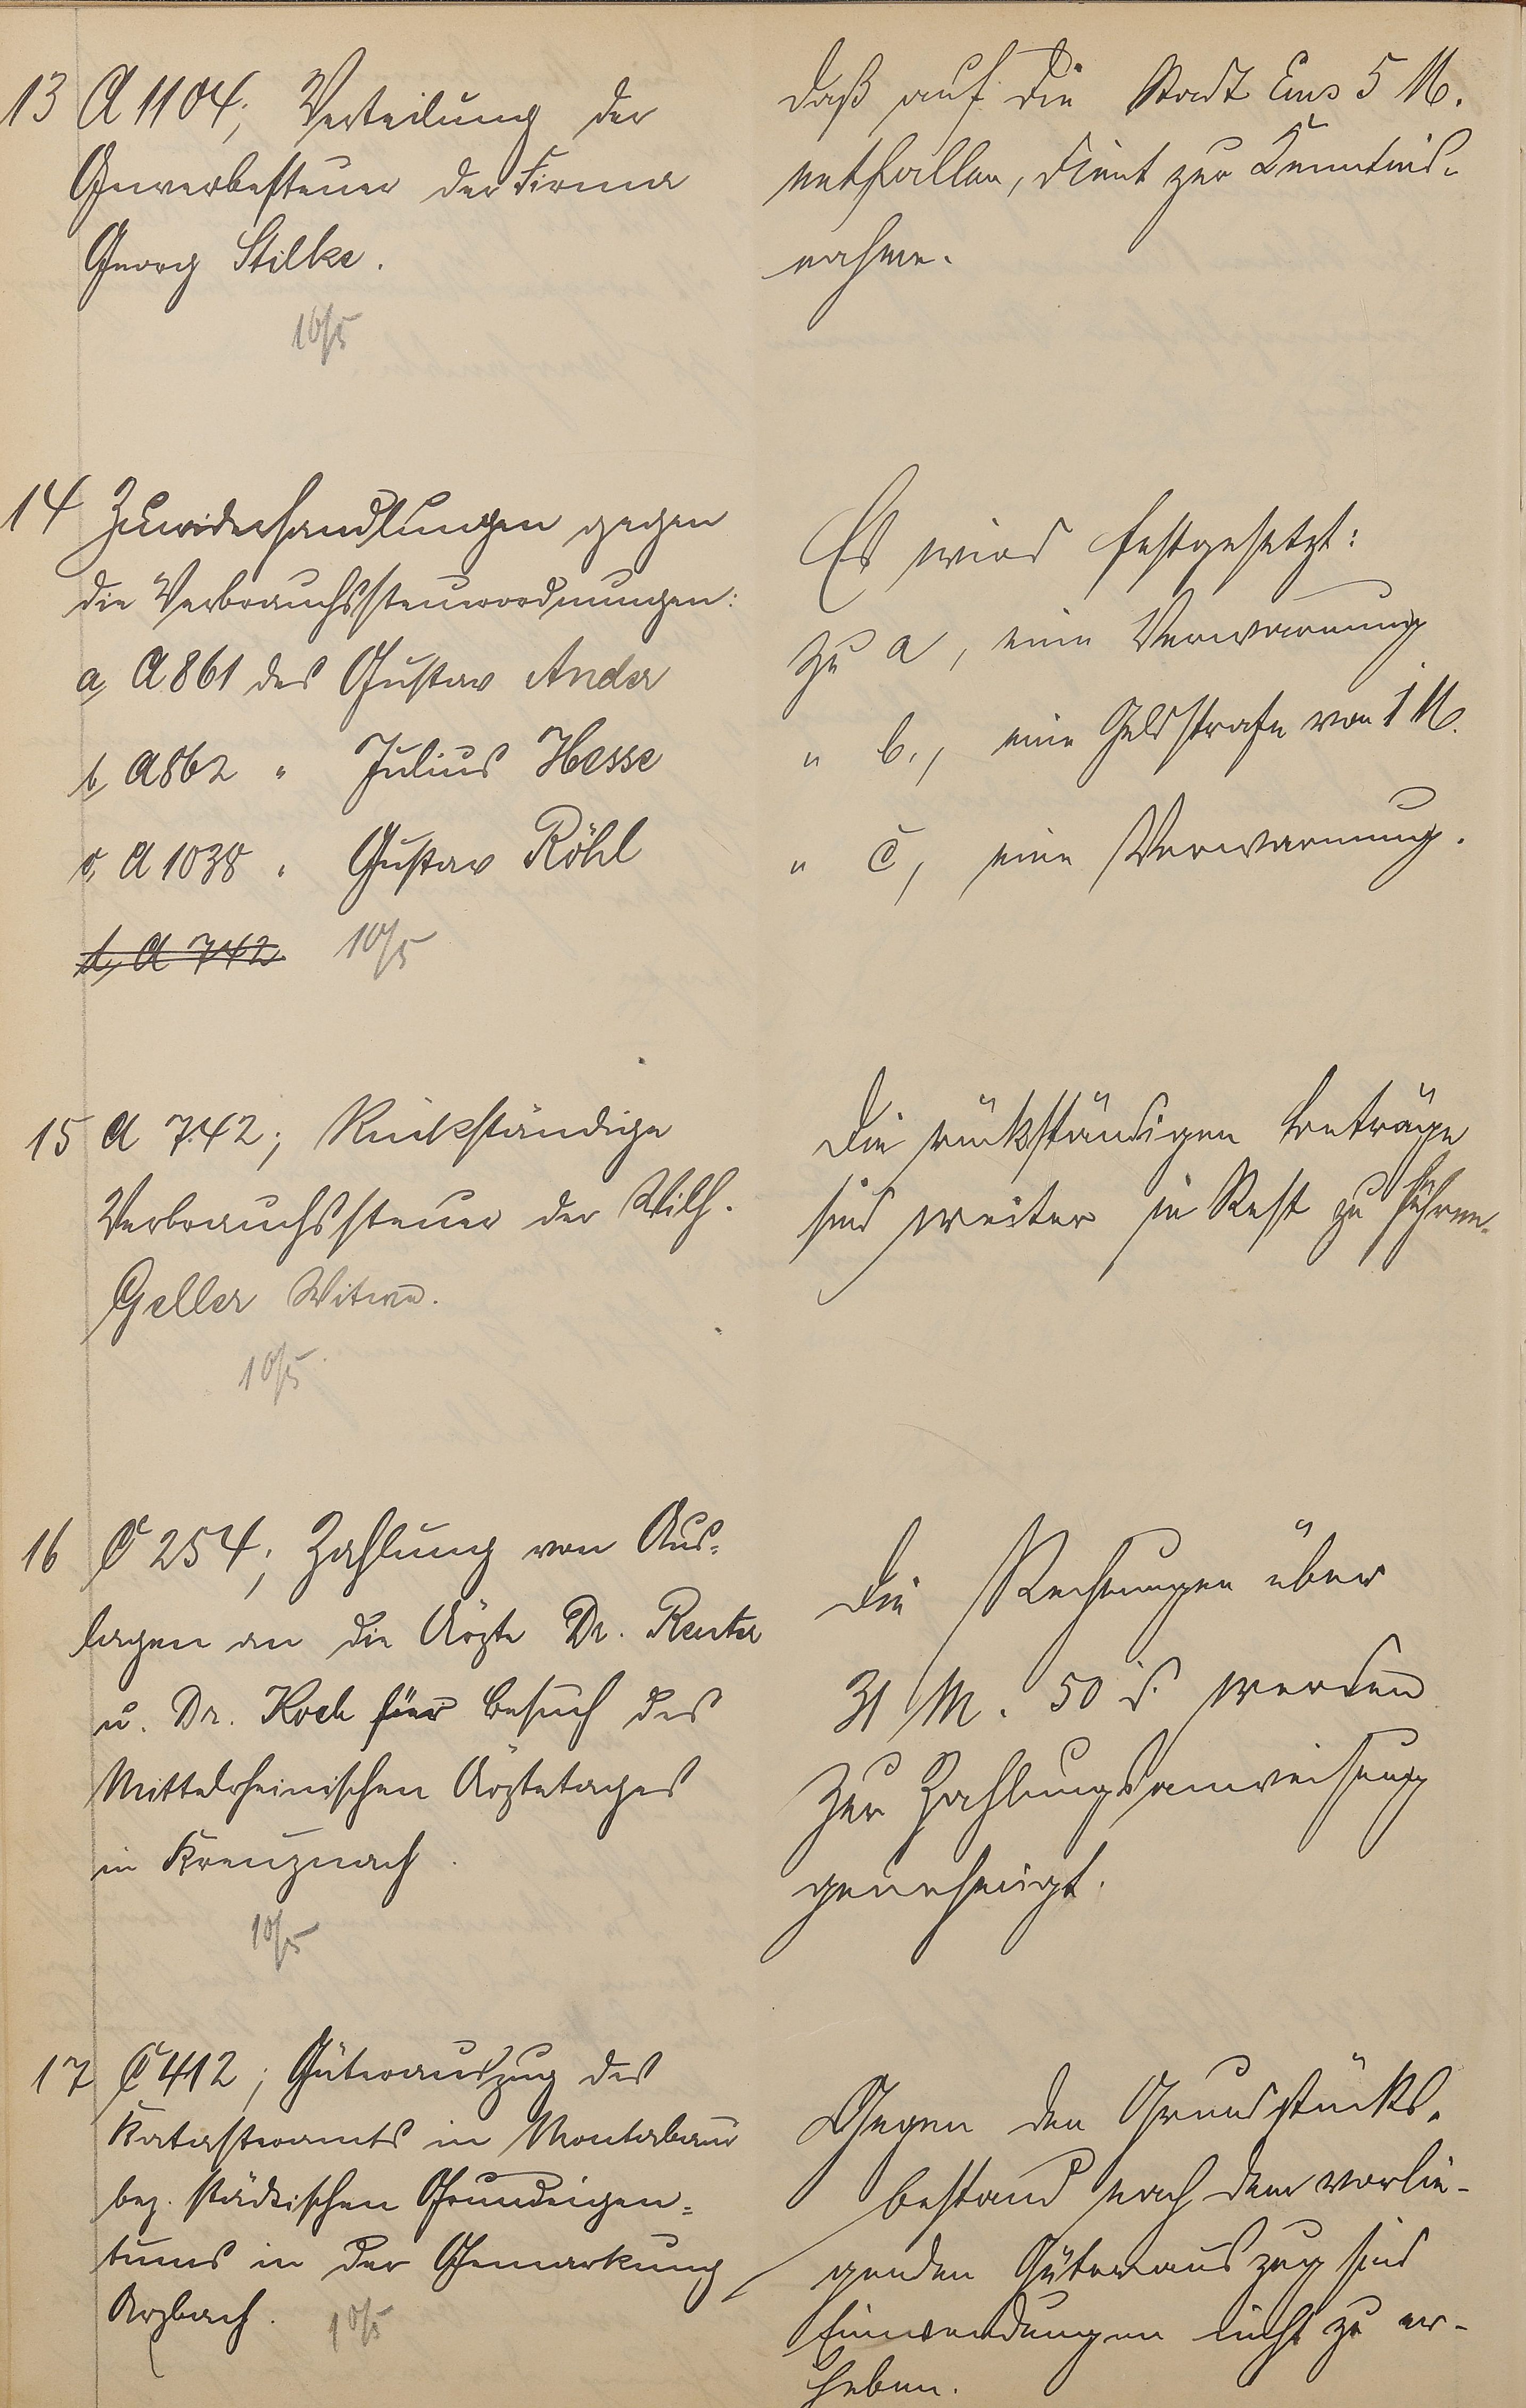 13 A 1104; Verteilung der
Gewerbesteuer der Firma
Georg Stilke.
10/5
daß auf die Stadt Ems 5 M.
entfallen, dient zur Kenntnis-
nahme.
14 Zuwiderhandlungen gegen
die Verbrauchssteuerordnungen:
a, A 861 des Gustav Ander
b, A 862 " Julius Hesse
c, A 1038 " Gustav Röhl
d, A 742
10/5
Es wird festgesetzt:
zu a, eine Verwarnung
" b., eine Geldstrafe von 1 M.
" c, eine Verwarnung.
15 A 742; Rückständige
Verbrauchssteuer der Wilh.
Geller Witwe.
10/5
Die rückständigen Beträge
sind weiter in Rest zu führen.
16 C 254; Zahlung von Aus-
lagen an die Ärzte Dr. Reuter
u. Dr. Koch für Besuch des
Mittelrheinischen Ärztetages
in Kreuznach.
10/5
Die Rechnungen über
31 M. 50 S. werden
zur Zahlungsanweisung
genehmigt.
17 C 412; Güterauszug des
Katasteramts in Montabaur
bez. städtischen Grundeigen-
tums in der Gemarkung
Arzbach.
10/5
Gegen den Grundstücks-
bestand nach dem vorlie-
genden Güterauszug sind
Einwendungen nicht zu er-
heben.